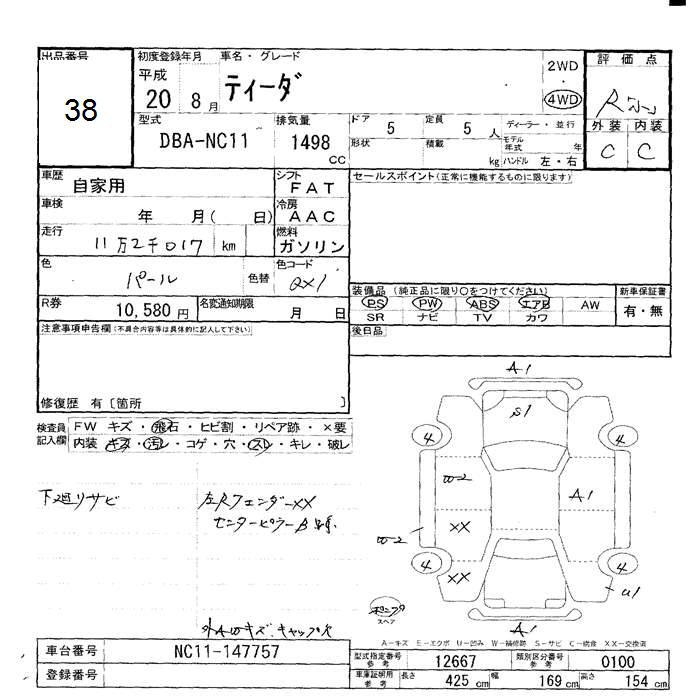 出品番号
38
初度登録年月
平成
20 8月
車名・グレード
ティーダ
2WD
・
4WD
評価点
R
外装 内装
C C
型式
DBA-NC11
排気量
1498
CC
ドア 5
定員 5 人
ディーラー・並行
形状
積載 kg
モデル年式 年
ハンドル 左・右
車歴
自家用
シフト
FAT
車検
年 月( 日)
冷房
AAC
走行
11万2千017 km
燃料
ガソリン
色
パール
色替
色コード
QX1
R券
10,580円
名変通知期限
月 日
セールスポイント(正常に機能するものに限ります)
装備品 (純正品に限り○をつけてください)
PS PW ABS エアB AW
SR ナビ TV カワ
新車保証書
有・無
後日品
注意事項申告欄(不具合内容等は具体的に記入して下さい)
修復歴 有〔箇所 〕
検査員記入欄
FW キズ・飛石・ヒビ割・リペア跡・×要
内装 キズ・汚レ・コゲ・穴・スレ・キレ・破レ
下廻りサビ
左Rフェンダーxx
センターピラー
外AWキズ、キャップ欠
A1
S1
4
4
W-2
A1
XX
W-2
4
XX
4
U1
スペア
A1
A-キズ E-エクボ U-凹み W-補修跡 S-サビ C-腐食 XX-交換済
車台番号
NC11-147757
登録番号
型式指定番号 参考
12667
類別区分番号 参考
0100
車庫証明用 参考
長さ 425 cm
幅 169 cm
高さ 154 cm